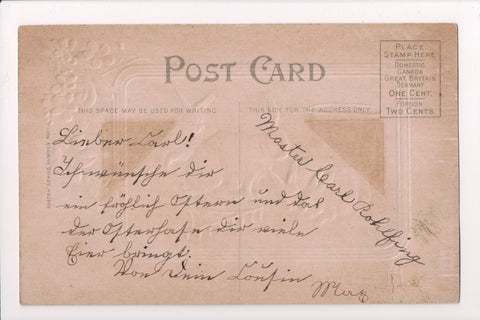 POST CARD
PLACE
STAMP HERE
DOMESTIC
CANADA
GREAT BRITAIN
GERMANY
ONE CENT.
FOREIGN
TWO CENTS.
THIS SPACE MAY BE USED FOR WRITING
THIS SIDE FOR THE ADDRESS ONLY
Lieber Carl!
Ich wünsche dir
ein fröhlich Ostern und das
der Osterhase dir viele
Eier bringt.
Von Dein Cousin
Max
Master Carl Rohlfing
EASTER SERIES NUMBER